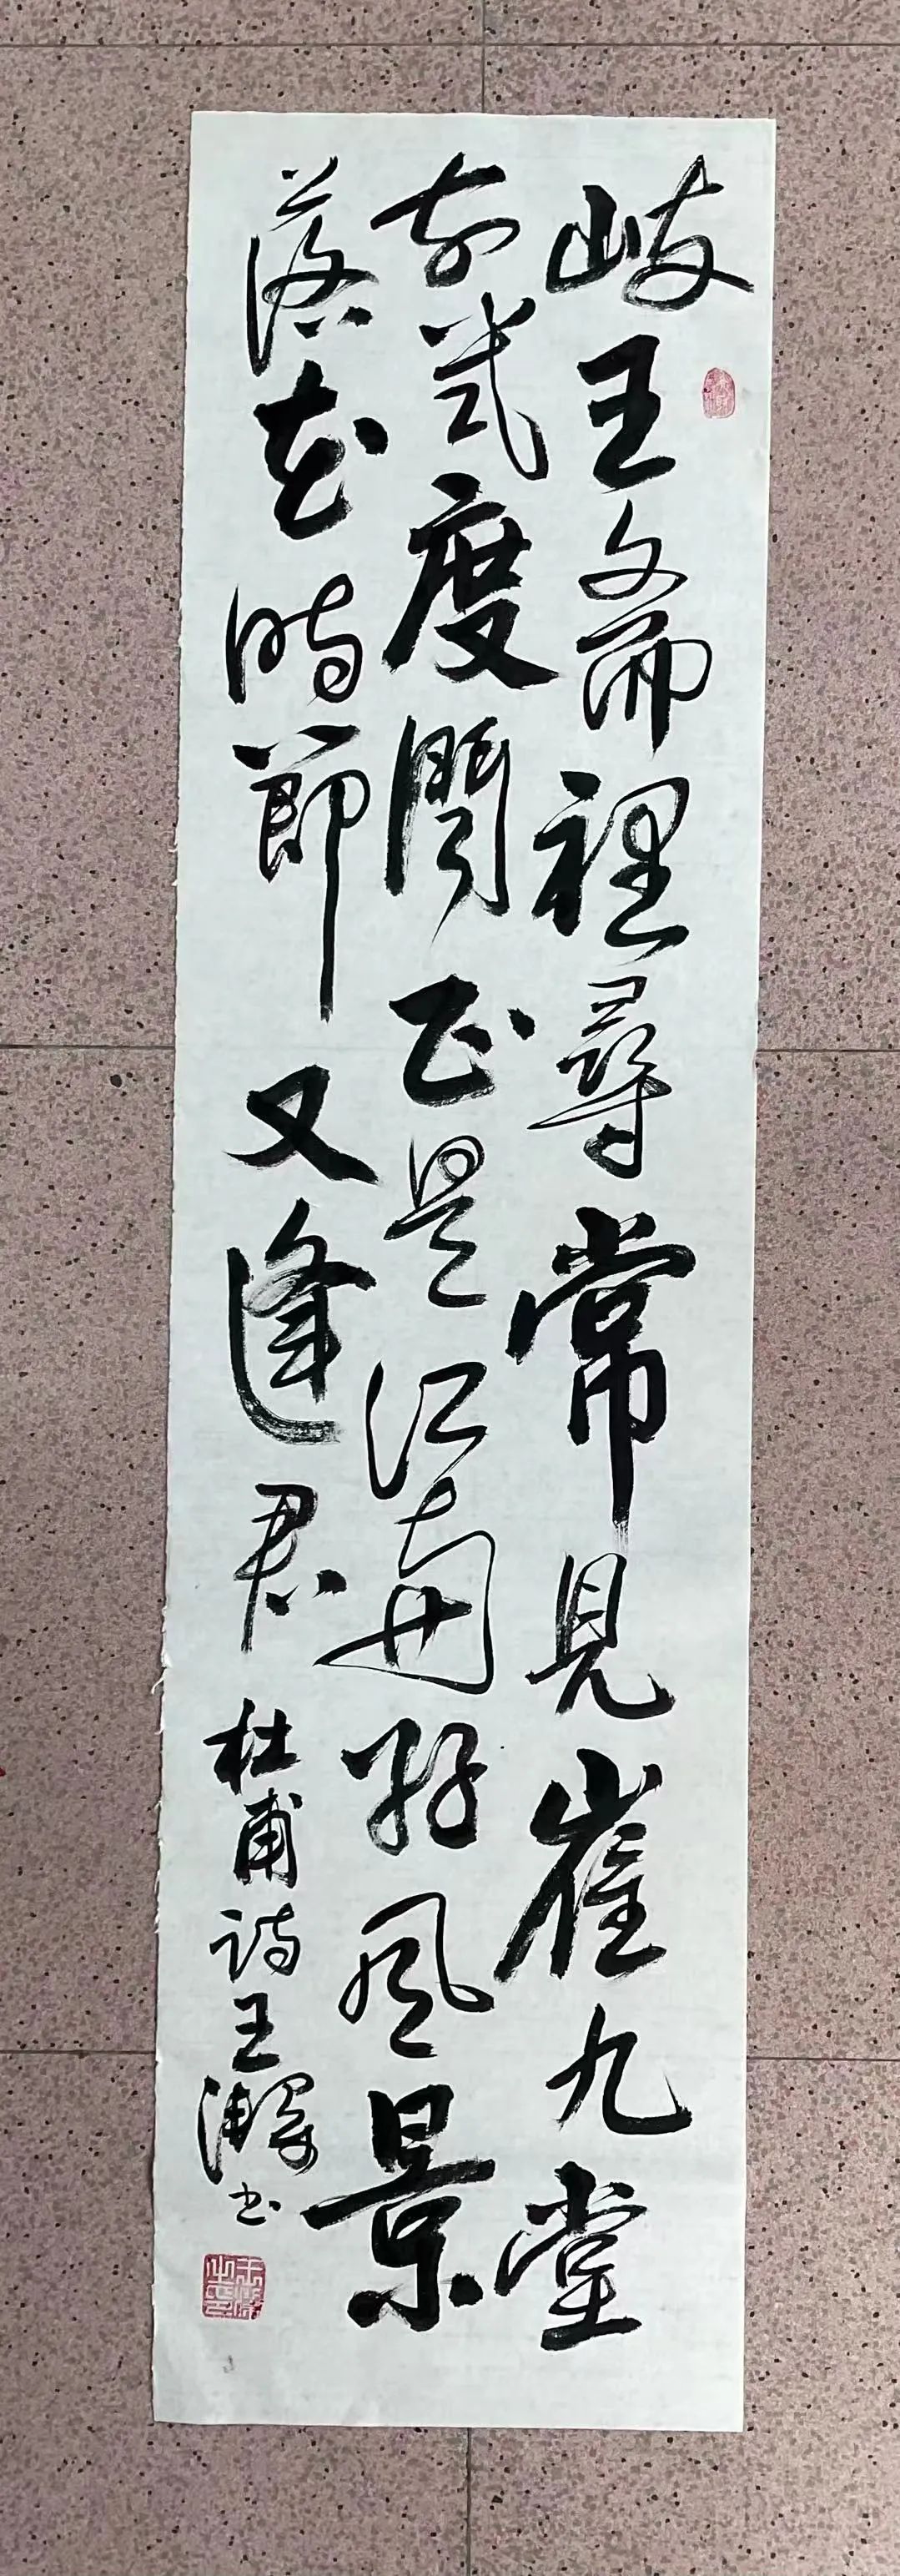 岐王斋裡尋常見崔九堂
前幾度聞正是江南好風景
落花時節又逢君
杜甫詩王书